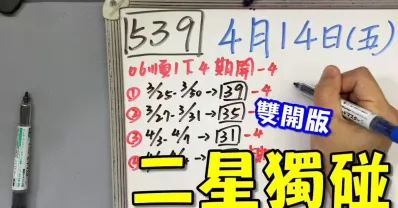 539 4月14日(五)
06順1下4期開-4
① 3/25-3/30→39-4
② 3/27-3/31→35-4
雙開版
③ 4/3-4/7→31-4
④
二星獨碰